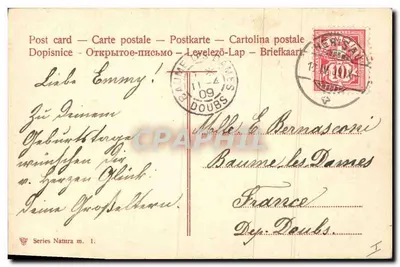 Post card – Carte postale – Postkarte – Cartolina postale
Dopisnice – Открытое-письмо – Levelező-Lap – Briefkaart
HERISAU
10
BAUME LES DAMES
11 - 4
09
DOUBS
Liebe Emmy!
Zu Deinem
Geburtstage
wünschen Dir
v. Herzen Glück
Deine Großeltern.
Mlle E. Bernasconi
Baume les Dames
France
Dep. Doubs.
Delcampe
Series Natura m. 1.
I